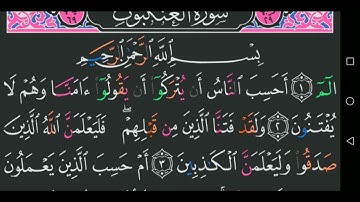 سورة العنكبوت
بِسْمِ اللَّهِ الرَّحْمَٰنِ الرَّحِيمِ
الٓمٓ ۝١ أَحَسِبَ النَّاسُ أَن يُتْرَكُوٓا۟ أَن يَقُولُوٓا۟ ءَامَنَّا وَهُمْ لَا
يُفْتَنُونَ ۝٢ وَلَقَدْ فَتَنَّا الَّذِينَ مِن قَبْلِهِمْ ۖ فَلَيَعْلَمَنَّ اللَّهُ الَّذِينَ
صَدَقُوا۟ وَلَيَعْلَمَنَّ الْكَٰذِبِينَ ۝٣ أَمْ حَسِبَ الَّذِينَ يَعْمَلُونَ